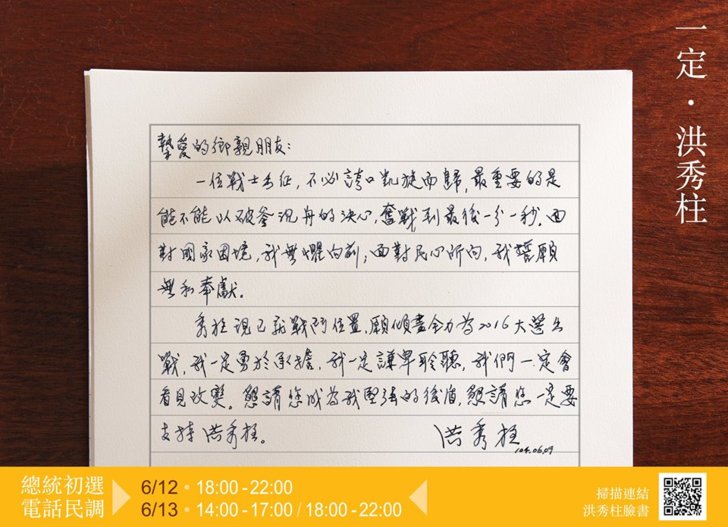 一定・洪秀柱
摯愛的鄉親朋友：
一位戰士出征，不必誇口凱旋而歸，最重要的是
能不能以破釜沉舟的決心，奮戰到最後一分一秒。面
對國家困境，我無懼向前；面對民心所向，我誓願
無私奉獻。
秀柱現已就戰鬥位置，願傾盡全力為2016大選出
戰，我一定勇於承擔，我一定謙卑聆聽，我們一定會
看見改變。懇請您成為我堅強的後盾，懇請您一定要
支持洪秀柱。
洪秀柱
104.06.09
總統初選
電話民調
6/12・18:00-22:00
6/13・14:00-17:00/18:00-22:00
掃描連結
洪秀柱臉書